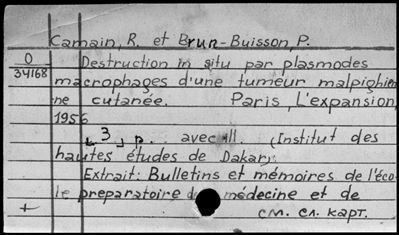 Camain, R. et Brun-Buisson, P.
O
34168
Destruction in situ par plasmodes
macrophages d'une tumeur malpighien
ne cutanée. Paris, L'expansion,
1956
[3] p. avec ill. (Institut des
hautes études de Dakar).
Extrait: Bulletins et mémoires de l'éco-
le préparatoire de médecine et de
+
см. сл. карт.